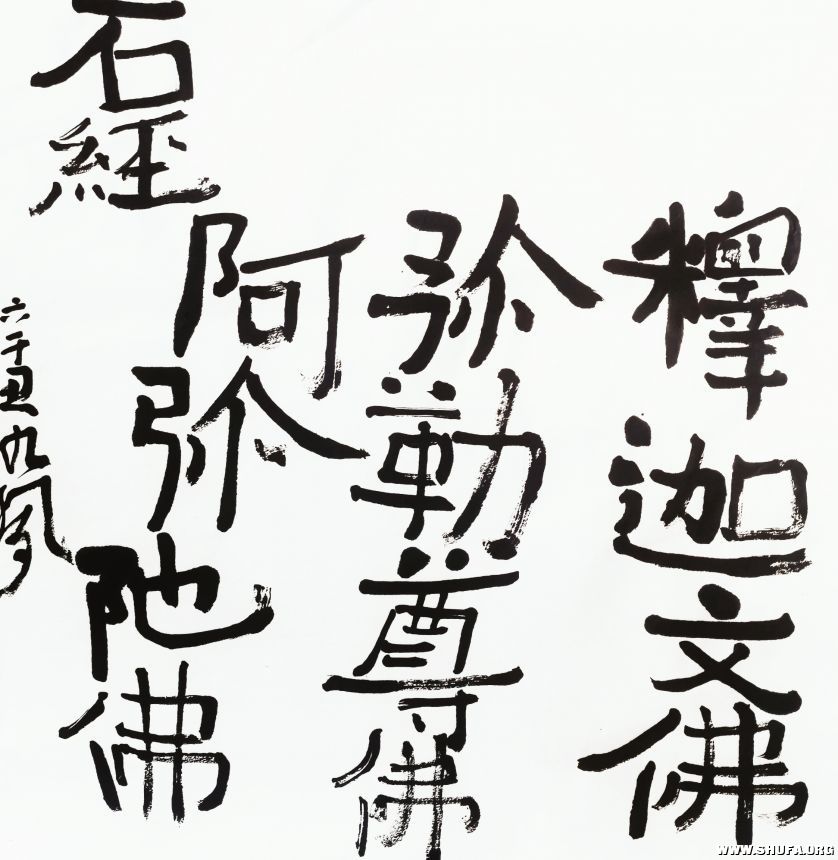 釋迦文佛
弥勒尊佛
阿弥陁佛
石經
丑九
WWW.SHUFA.ORG